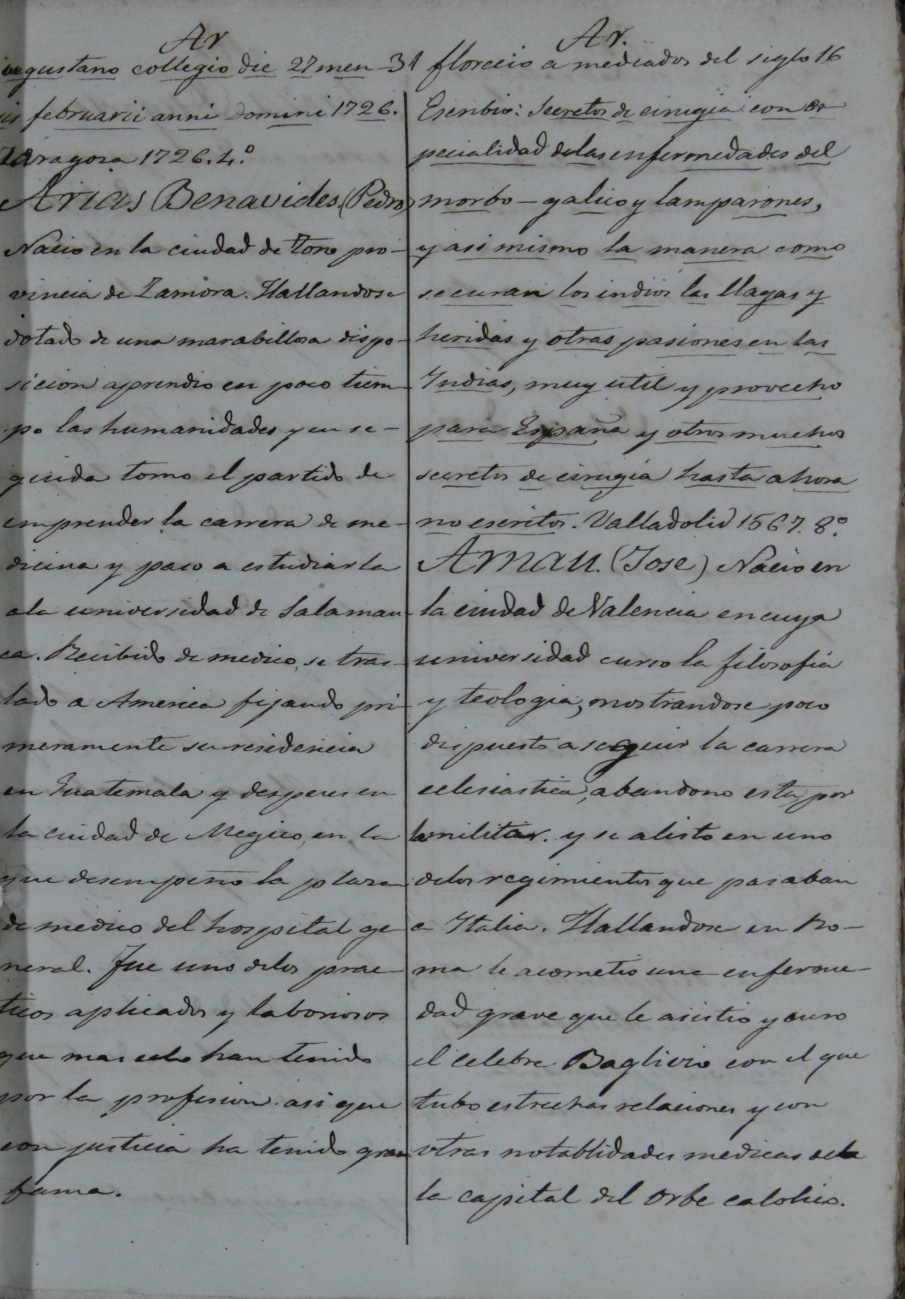 Ar
gustano collegio die 27 men-
is februarii anni Domini 1726.
Zaragoza 1726. 4.º
Arias Benavides. (Pedro)
Nacio en la ciudad de Toro pro-
vincia de Zamora. Hallandose
dotado de una marabillosa dispo-
sicion aprendio en poco tiem-
po las humanidades y en se-
guida tomo el partido de
emprender la carrera de me-
dicina y paso a estudiarla
ala universidad de Salaman-
ca. Recibido de medico, se tras-
lado a America fijando pri-
meramente su residencia
en Guatemala y despues en
la ciudad de Megico, en la
que desempeño la plaza
de medico del hospital ge-
neral. Fue uno delos prac-
ticos aplicados y laboriosos
que mas celo han tenido
por la profesion. asi que
con justicia ha tenido gran
fama.
Ar.
31 florecio a mediados del siglo 16
Escribio: Secretos de cirugia con es-
pecialidad delas enfermedades del
morbo-galico y lamparones,
y asi mismo la manera como
se curan los indios las llagas y
heridas y otras pasiones en las
Indias, muy util y provecho
para España y otros muchos
secretos de cirugia hasta ahora
no escritos. Valladolid 1567. 8.º
Arnau. (Jose) Nacio en
la ciudad de Valencia en cuya
universidad curso la filosofia
y teologia; mostrandose poco
dispuesto a seguir la carrera
eclesiastica, abandono esta por
la militar. y se alisto en uno
delos regimientos que pasaban
a Italia. Hallandose en Ro-
ma le acometio una enferme-
dad grave que le asistio y curo
el celebre Baglivio con el que
tubo estrechas relaciones y con
otras notablidades medicas dela
la capital del orbe catolico.